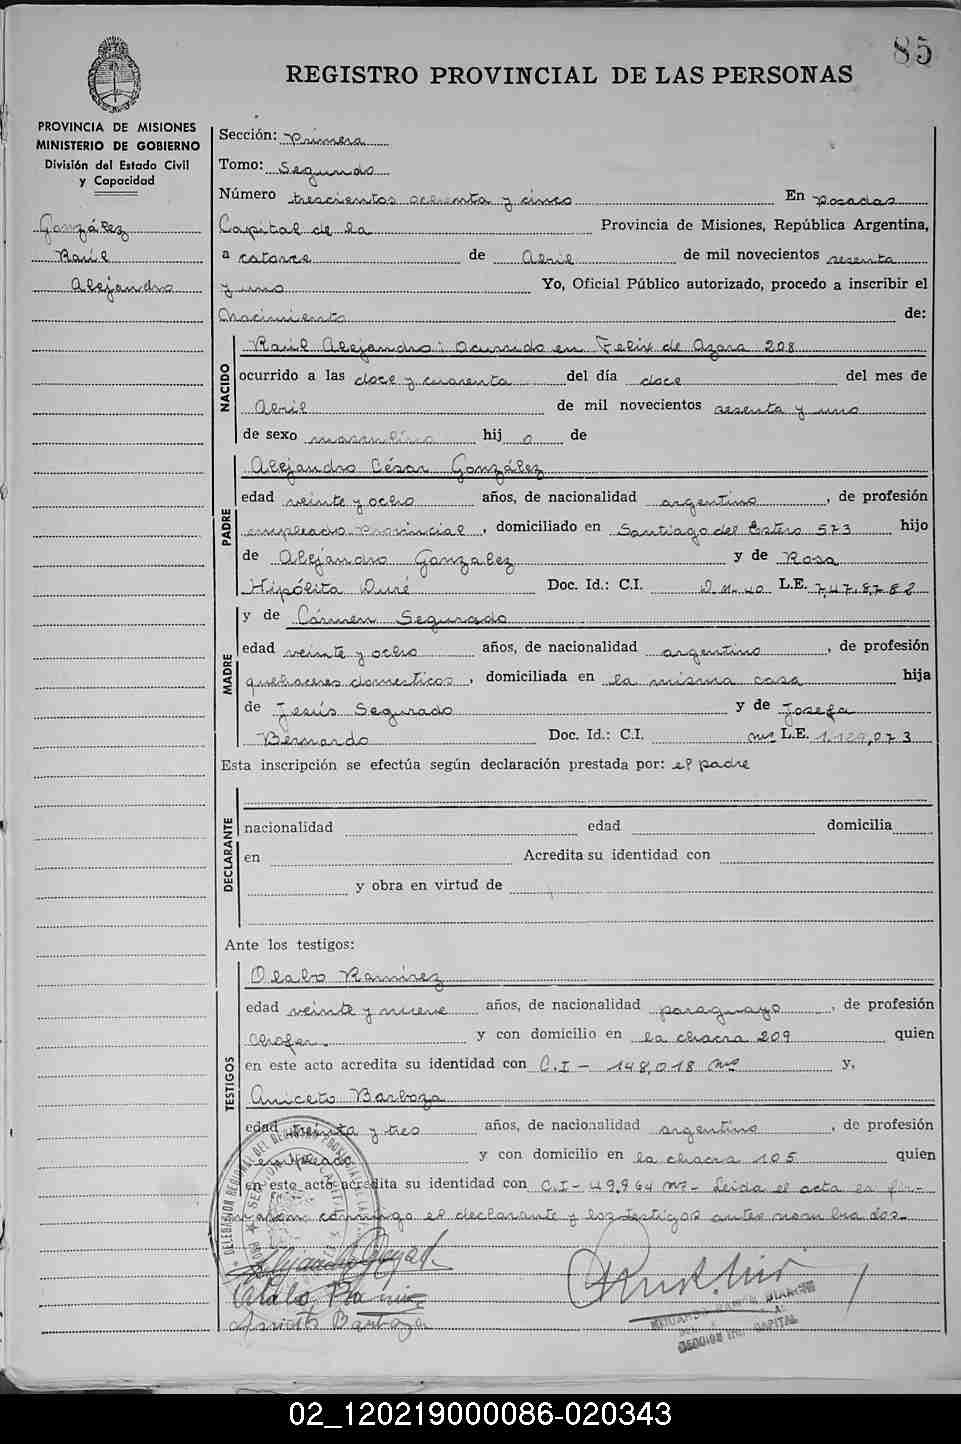 85
REGISTRO PROVINCIAL DE LAS PERSONAS
PROVINCIA DE MISIONES
MINISTERIO DE GOBIERNO
División del Estado Civil
y Capacidad
González
Raúl
Alejandro
Sección: Primera
Tomo: Segundo
Número trescientos ochenta y cinco En Posadas
Capital de la Provincia de Misiones, República Argentina,
a catorce de Abril de mil novecientos sesenta
y uno Yo, Oficial Público autorizado, procedo a inscribir el
Nacimiento de:
NACIDO
Raúl Alejandro: Ocurrido en Felix de Azara 208
ocurrido a las doce y cuarenta del día doce del mes de
Abril de mil novecientos sesenta y uno
de sexo masculino hij o de
PADRE
Alejandro César González
edad veinte y ocho años, de nacionalidad argentino, de profesión
empleado Provincial, domiciliado en Santiago del Estero 573 hijo
de Alejandro Gonzalez y de Rosa
Hipólita Duré Doc. Id.: C.I. D.M. 40 L.E. 7,47.8,782
MADRE
y de Cármen Segurado
edad veinte y ocho años, de nacionalidad argentino, de profesión
quehaceres domesticos, domiciliada en la misma casa hija
de Jesús Segurado y de Josefa
Bernardo Doc. Id.: C.I. Mns L.E. 1.129,073
Esta inscripción se efectúa según declaración prestada por: el padre
DECLARANTE
nacionalidad edad domicilia
en Acredita su identidad con
y obra en virtud de
Ante los testigos:
TESTIGOS
Olalo Ramirez
edad veinte y nueve años, de nacionalidad paraguayo, de profesión
Chofer. y con domicilio en la chacra 209 quien
en este acto acredita su identidad con C.I - 148,018 Mns y,
Aniceto Barboza
edad treinta y tres años, de nacionalidad argentino, de profesión
empleado y con domicilio en la chacra 105 quien
en este acto acredita su identidad con C.I - 49,964 Mns - Leida el acta la fir-
maron conmigo el declarante y los testigos antes nombrados.
DELEGACION REGIONAL DEL REGISTRO PROVINCIAL DE LAS
Olalo Rami
Aniceto Barboza
CAPITAL
02_120219000086-020343